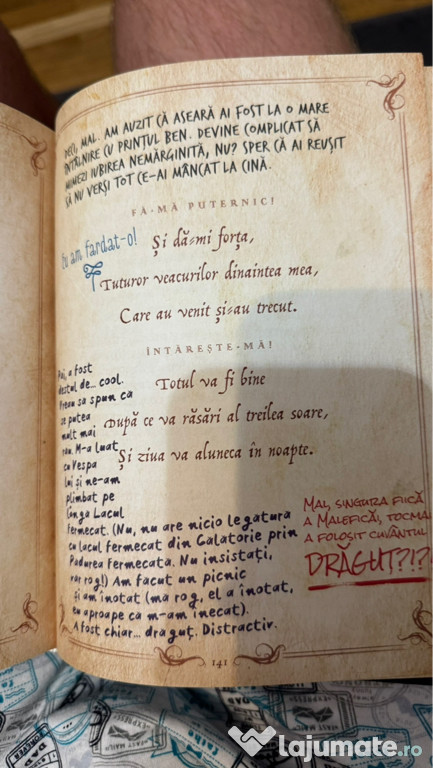 DECI, MAL. AM AUZIT CĂ ASEARĂ AI FOST LA O MARE
ÎNTÂLNIRE CU PRINȚUL BEN. DEVINE COMPLICAT SĂ
MIMEZI IUBIREA NEMĂRGINITĂ, NU? SPER CĂ AI REUȘIT
SĂ NU VERȘI TOT CE-AI MÂNCAT LA CINĂ.
FĂ-MĂ PUTERNIC!
Eu am fardat-o!
Și dă-mi forța,
Tuturor veacurilor dinaintea mea,
Care au venit și-au trecut.
ÎNTĂREȘTE-MĂ!
Totul va fi bine
După ce va răsări al treilea soare,
Și ziua va aluneca în noapte.
Păi, a fost
destul de... cool.
Vreau să spun că
se putea
mult mai
rău. M-a luat
cu Vespa
lui și ne-am
plimbat pe
lângă Lacul
Fermecat. (Nu, nu are nicio legătură
cu lacul fermecat din Galatorie prin
Pădurea Fermecată. Nu insistați,
vă rog!) Am făcut un picnic
și am înotat (mă rog, el a înotat,
eu aproape că m-am înecat).
A fost chiar... drăguț. Distractiv.
MAL, SINGURA FIICĂ
A MALEFICĂI, TOCMAI
A FOLOSIT CUVÂNTUL
DRĂGUȚ?!?!
141
lajumate.ro